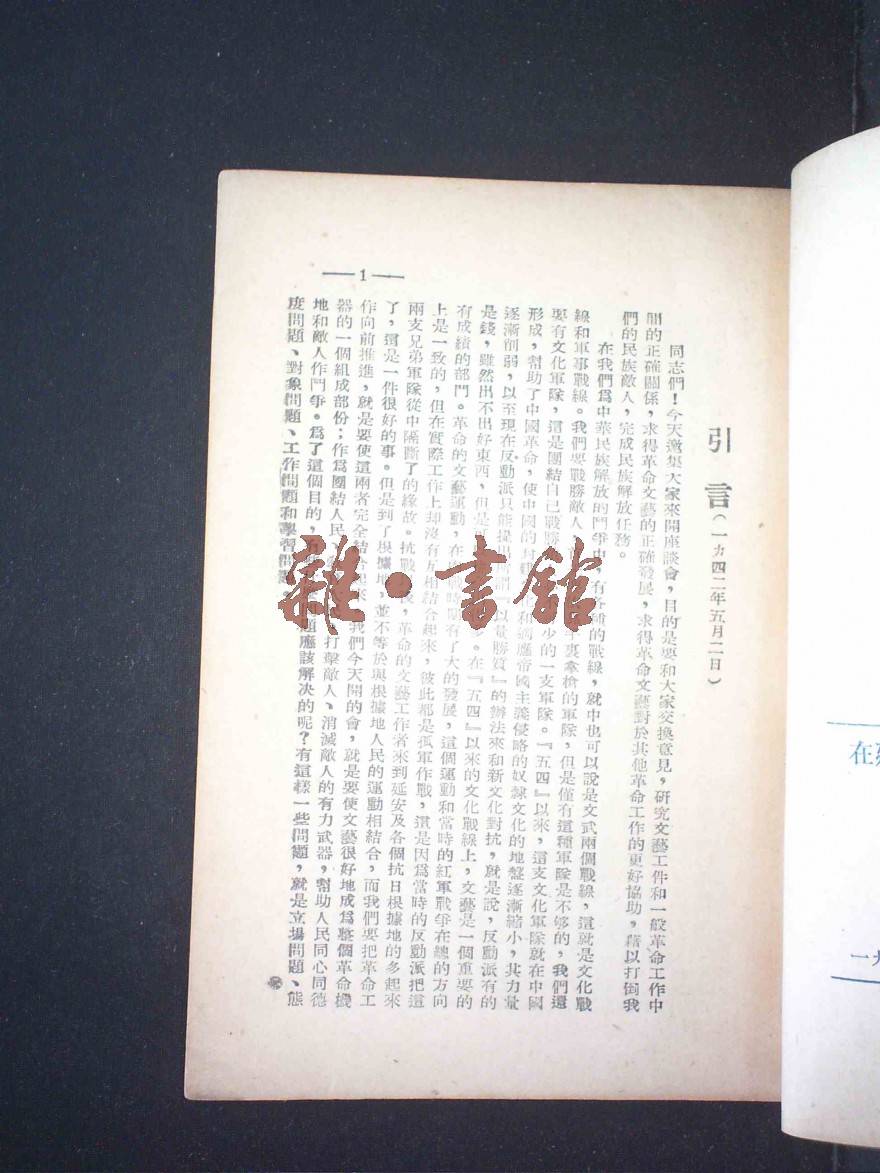 引言(一九四二年五月二日)
同志們!今天邀集大家來開座談會,目的是要和大家交換意見,研究文藝工作和一般革命工作中
間的正確關係,求得革命文藝的正確發展,求得革命文藝對於其他革命工作的更好協助,藉以打倒我
們的民族敵人,完成民族解放任務。
在我們爲中華民族解放的鬥爭中,有各種的戰線,就中也可以說是文武兩個戰線,這就是文化戰
線和軍事戰線。我們要戰勝敵人 手裏拿槍的軍隊,但是僅有這種軍隊是不够的,我們還
要有文化軍隊,這是團結自己戰勝 少的一支軍隊。『五四』以來,這支文化軍隊就在中國
形成,幫助了中國革命,使中國的封建文化和適應帝國主義侵略的奴隸文化的地盤逐漸縮小,其力量
逐漸削弱,以至現在反動派只能提出 以量勝質』的辦法來和新文化對抗,就是說,反動派有的
是錢,雖然出不出好東西,但是可 多。在『五四』以來的文化戰線上,文藝是一個重要的
有成績的部門。革命的文藝運動,在 戰時期有了大的發展,這個運動和當時的紅軍戰爭在總的方向
上是一致的,但在實際工作上却沒有互相結合起來,彼此都是孤軍作戰,這是因爲當時的反動派把這
兩支兄弟軍隊從中隔斷了的緣故。抗戰 後,革命的文藝工作者來到延安及各個抗日根據地的多起來
了,這是一件很好的事。但是到了根據地,並不等於與根據地人民的運動相結合,而我們要把革命工
作向前推進,就是要使這兩者完全結合起來。我們今天開的會,就是要使文藝很好地成爲整個革命機
器的一個組成部份;作爲團結人民、 打擊敵人、消滅敵人的有力武器,幫助人民同心同德
地和敵人作鬥爭。爲了這個目的,有 題應該解决的呢?有這樣一些問題,就是立場問題、態
度問題、對象問題、工作問題和學習問題。
—1—
雜·書館
在
一九